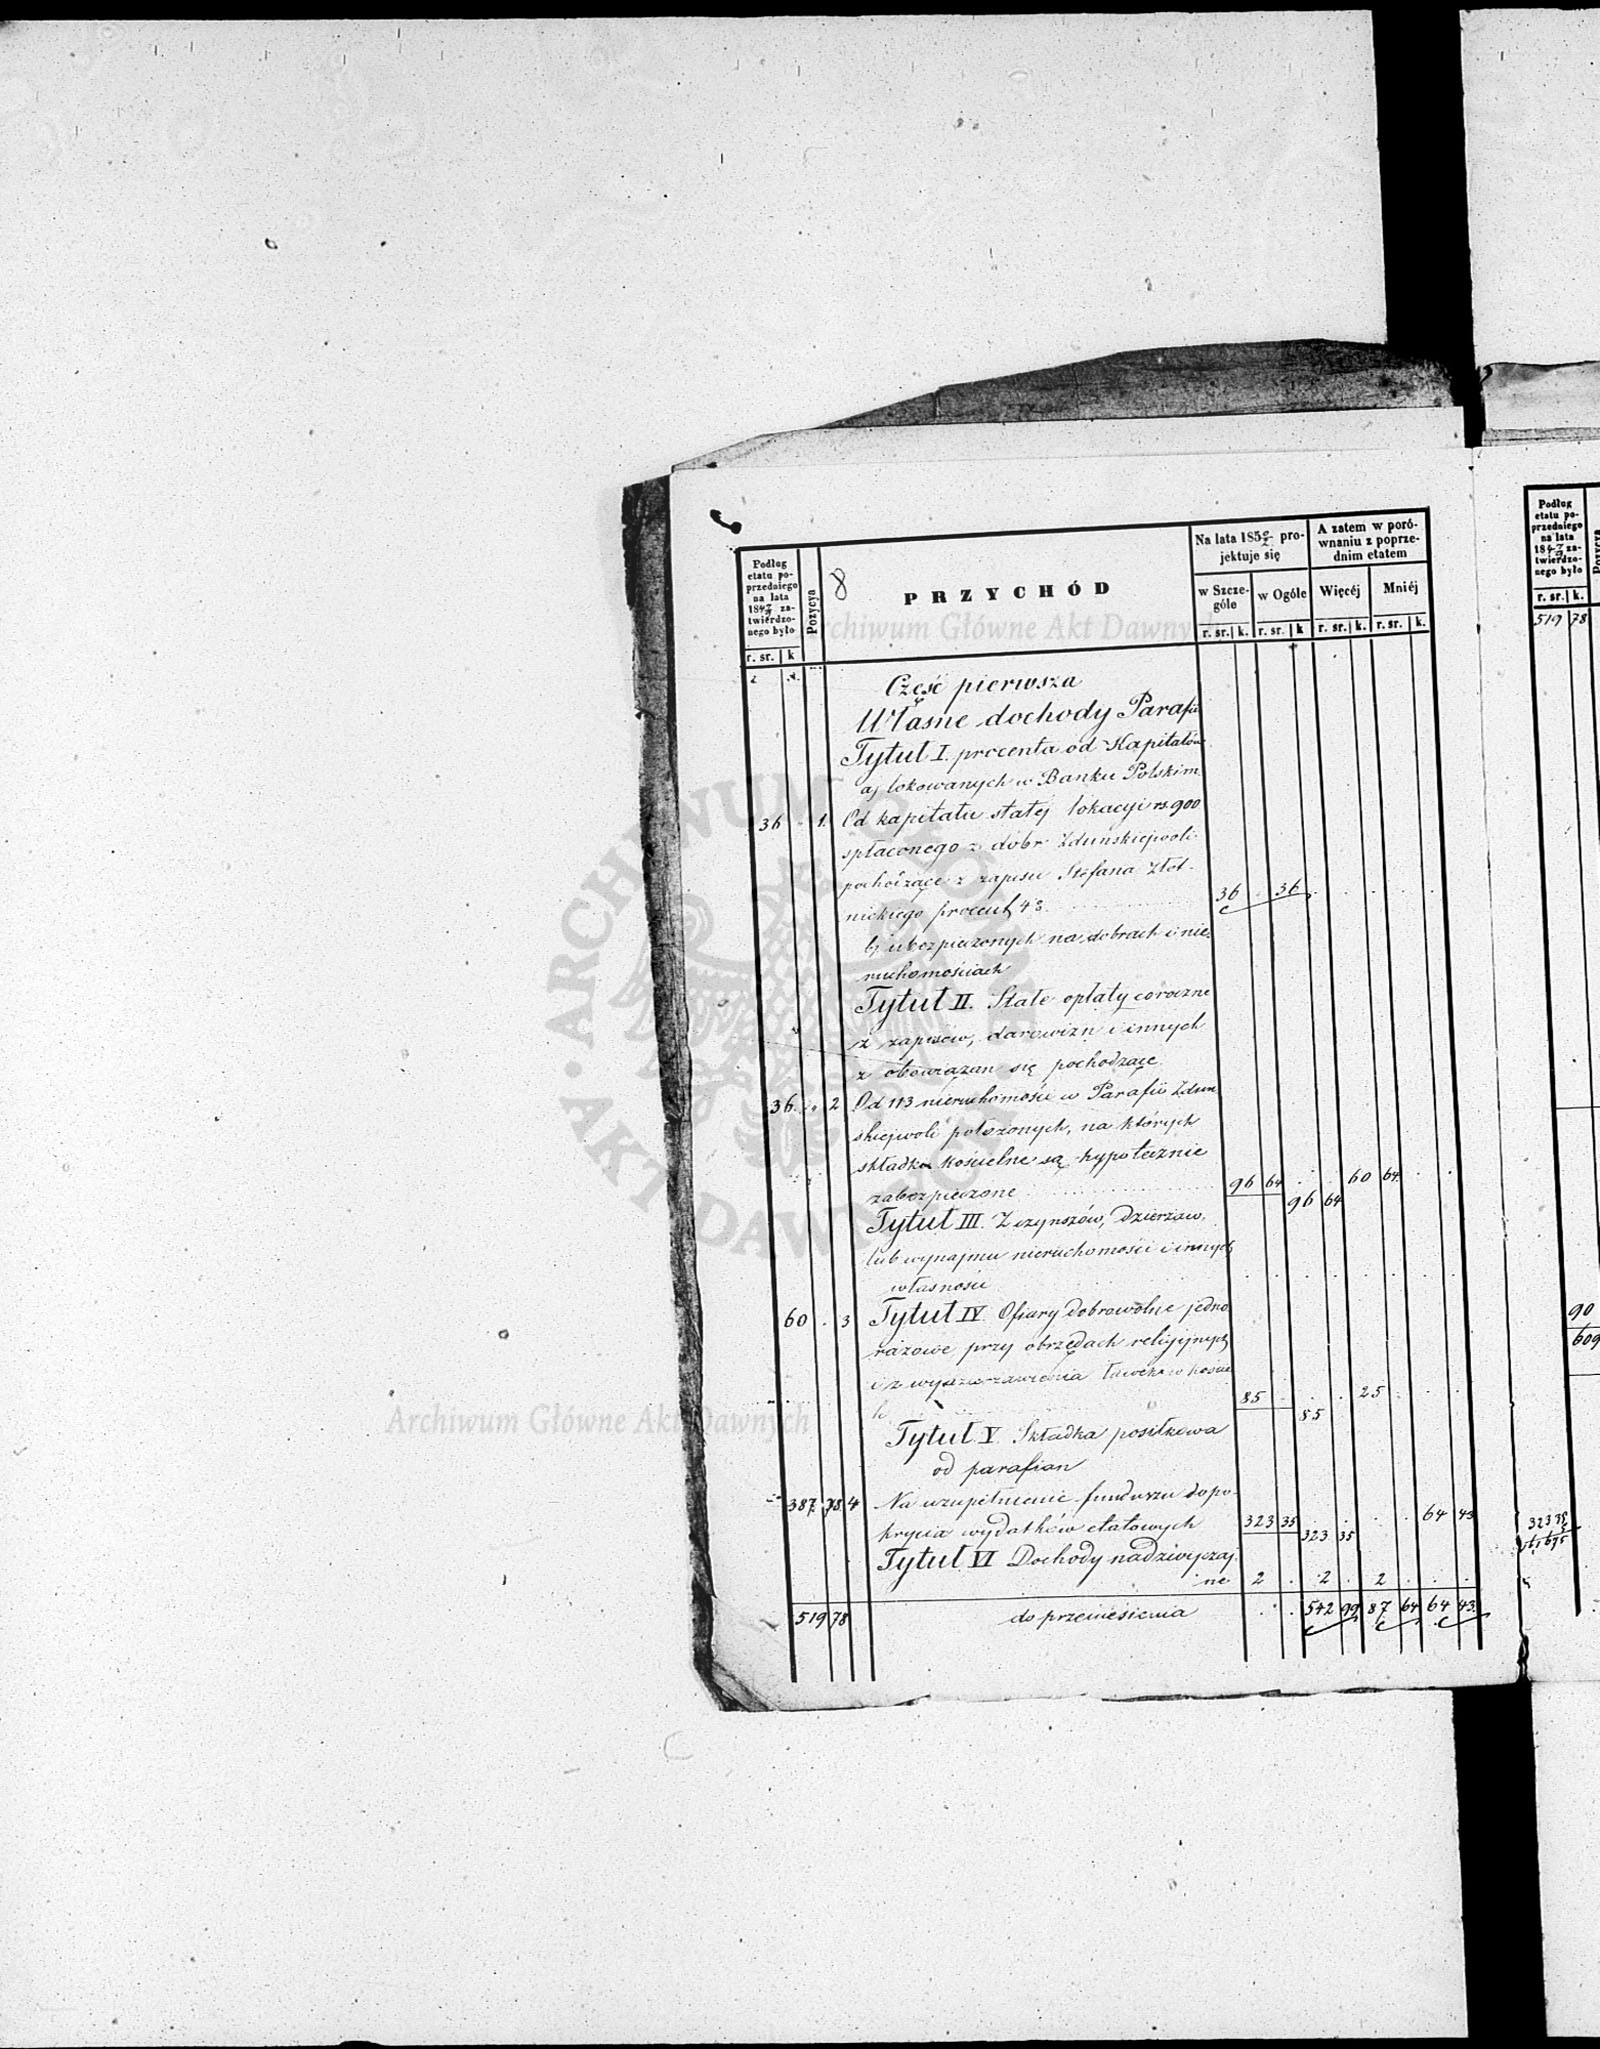 Podług
etatu po-
przedniego
na lata
184 7/9 za-
twierdzo-
nego było
r. sr. k
Pozycya
8
PRZYCHÓD
Na lata 185 0/2 pro-
jektuje się
w Szcze-
góle
w Ogóle
r. sr. k. r. sr. k
A zatem w poró-
wnaniu z poprze-
dnim etatem
Więcéj Mniéj
r. sr. k. r. sr. k.
Archiwum Główne Akt Dawnych
Część pierwsza
Własne dochody Parafii
Tytuł I. procenta od Kapitałów
a) lokowanych w Banku Polskim
36 . 1. Od kapitału stałej lokacyi rs. 900
spłaconego z dóbr Zduńskiejwoli
pochodzące z zapisu Stefana Złot-
nickiego procent 4% 36 . 36 .
b) ubezpieczonych na dobrach i nie-
ruchomościach
Tytuł II. Stałe opłaty coroczne
z zapisów, darowizn i innych
z obowiązań się pochodzące
36 . 2 Od 113 nieruchomości w Parafii Zduń
skiejwoli położonych, na których
składka kościelne są hypotecznie
zabezpieczone 96 64 96 64 60 64
Tytuł III. Z czynszów, Dzierżaw,
lub wynajmu nieruchomości i innych
własności
60 . 3 Tytuł IV. Ofiary dobrowolne jedno
razowe przy obrzędach religijnych
i z wydzierzawienia ławek w kościе
le 85 . 85 . 25
Tytuł V. Składka posiłkowa
od parafian
387 78 4 Na uzupełnienie funduszu do po-
krycia wydatków etatowych 323 35 323 35 64 43
Tytuł VI Dochody nadzwyczaj-
ne 2 . 2 . 2
519 78 do przeniesienia 542 99 87 64 64 43
ARCHIWUM GŁÓWNE AKT DAWNYCH
Archiwum Główne Akt Dawnych
Podług
etatu po-
przedniego
na lata
184 7/9 za-
twierdzo-
nego było
r. sr. k.
Pozycya
519 78
90
609